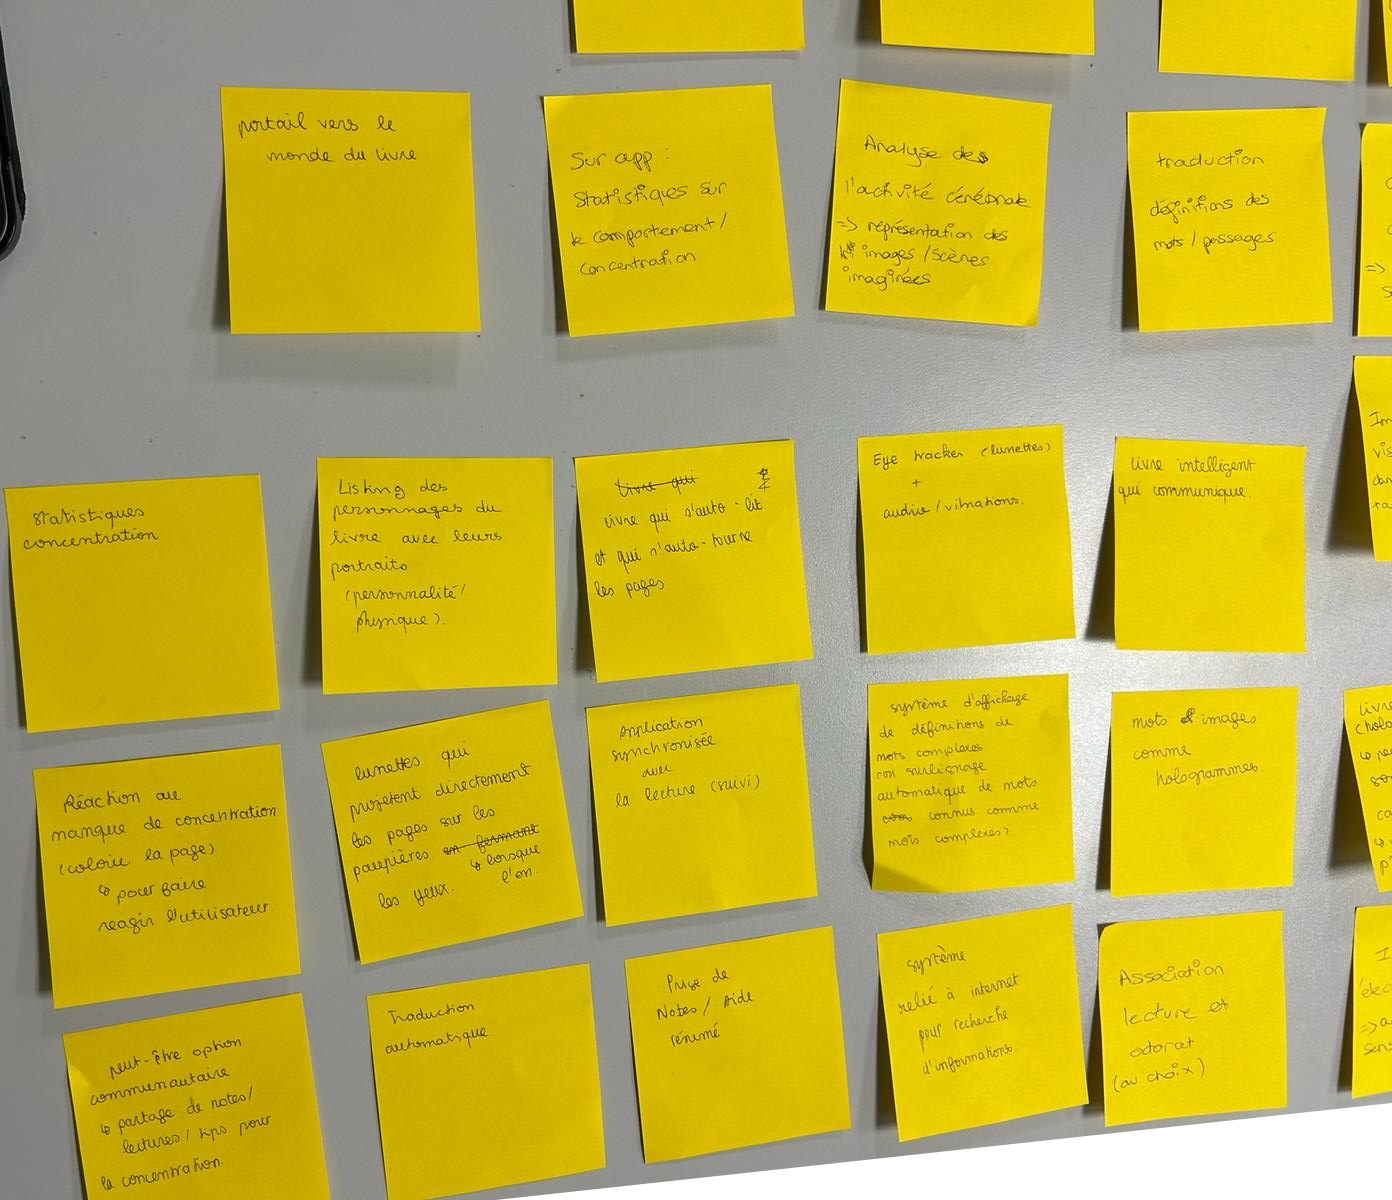 portail vers le
monde du livre
Sur app :
Statistiques sur
le comportement /
concentration
Analyse des
l'activité cérébrale
=> représentation des
images / scènes
imaginées
traduction
définitions des
mots / passages
=>
statistiques
concentration
Listing des
personnages du
livre avec leurs
portraits
(personnalité/
physique).
Livre qui
livre qui s'auto-lit
et qui s'auto-tourne
les pages
Eye tracker (lunettes)
+
audio / vibrations.
livre intelligent
qui communique.
Réaction au
manque de concentration
(colorie la page)
↳ pour faire
reagir l'utilisateur.
lunettes qui
projetent directement
les pages sur les
paupières en fermant
les yeux. ↳ lorsque
l'on.
Application
synchronisée
avec
la lecture (suivi)
système d'affichage
de définitions de
mots complexes
surlignage
automatique de mots
com connus comme
mots complexes).
mots & images
comme
hologrammes.
peut-être option
communautaire
↳ partage de notes/
lectures / tips pour
la concentration.
Traduction
automatique.
Prise de
Notes / Aide
résumé
système
relié à internet
pour recherche
d'informations.
Association
lecture et
odorat
(au choix)